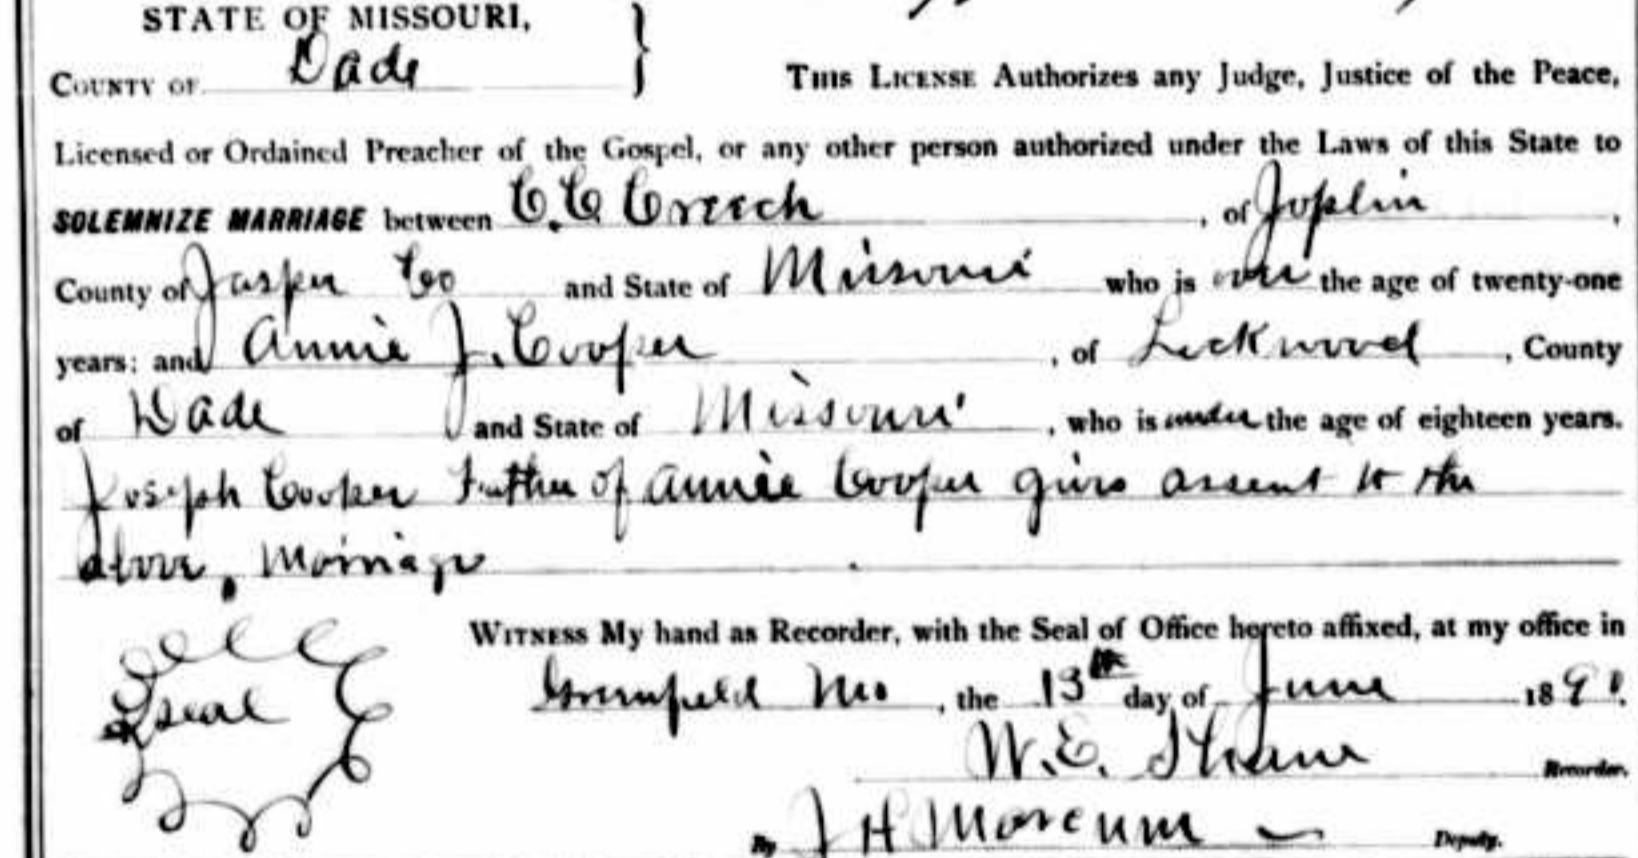 STATE OF MISSOURI,
COUNTY OF Dade
THIS LICENSE Authorizes any Judge, Justice of the Peace,
Licensed or Ordained Preacher of the Gospel, or any other person authorized under the Laws of this State to
SOLEMNIZE MARRIAGE between C.C Creech, of Joplin,
County of Jasper Co and State of Missouri who is over the age of twenty-one
years; and Annie J. Cooper, of Lockwood, County
of Dade and State of Missouri, who is under the age of eighteen years.
Joseph Cooper Father of Annie Cooper givs assent to the
above, Marriage
WITNESS My hand as Recorder, with the Seal of Office hereto affixed, at my office in
Seal
Greenfield Mo, the 13th day of June 189
W.E. Shaw Recorder.
By J H Deputy.